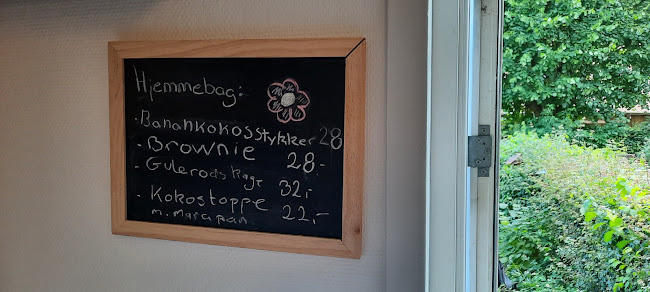 Hjemmebag:
· Banankokosstykker 28
· Brownie 28.-
· Gulerodskage 32,-
· Kokostoppe 22,-
m. Marcipan